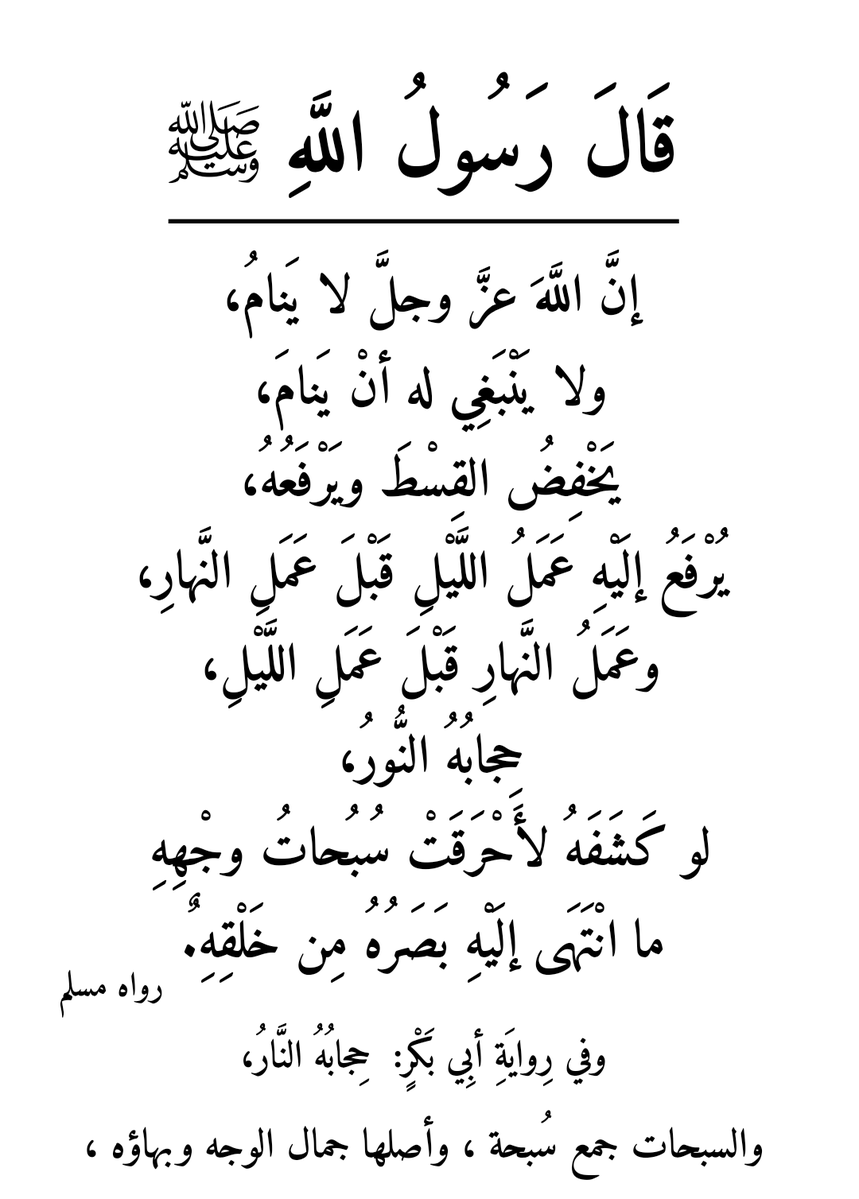 قَالَ رَسُولُ اللَّهِ ﷺ
إنَّ اللَّهَ عزَّ وجلَّ لا يَنامُ،
ولا يَنْبَغِي له أنْ يَنامَ،
يَخْفِضُ القِسْطَ ويَرْفَعُهُ،
يُرْفَعُ إلَيْهِ عَمَلُ اللَّيْلِ قَبْلَ عَمَلِ النَّهارِ،
وعَمَلُ النَّهارِ قَبْلَ عَمَلِ اللَّيْلِ،
حِجابُهُ النُّورُ،
لو كَشَفَهُ لأَحْرَقَتْ سُبُحاتُ وجْهِهِ
ما انْتَهَى إلَيْهِ بَصَرُهُ مِن خَلْقِهِ.ٌ
رواه مسلم
وفي رِوايَةِ أبِي بَكْرٍ: حِجابُهُ النَّارُ،
والسبحات جمع سُبحة ، وأصلها جمال الوجه وبهاؤه ،